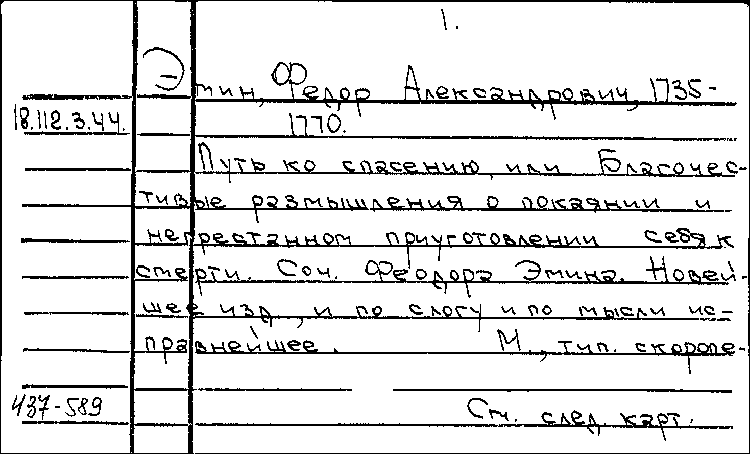 1.
Эмин, Федор Александрович, 1735-
18.112.3.44.
1770.
Путь ко спасению, или Благочес-
тивые размышления о покаянии и
непрестанном приуготовлении себя к
смерти. Соч. Феодора Эмина. Новей-
шее изд., и по слогу и по мысли ис-
правнейшее. М., тип. скоропе-
437-589
См. след. карт.